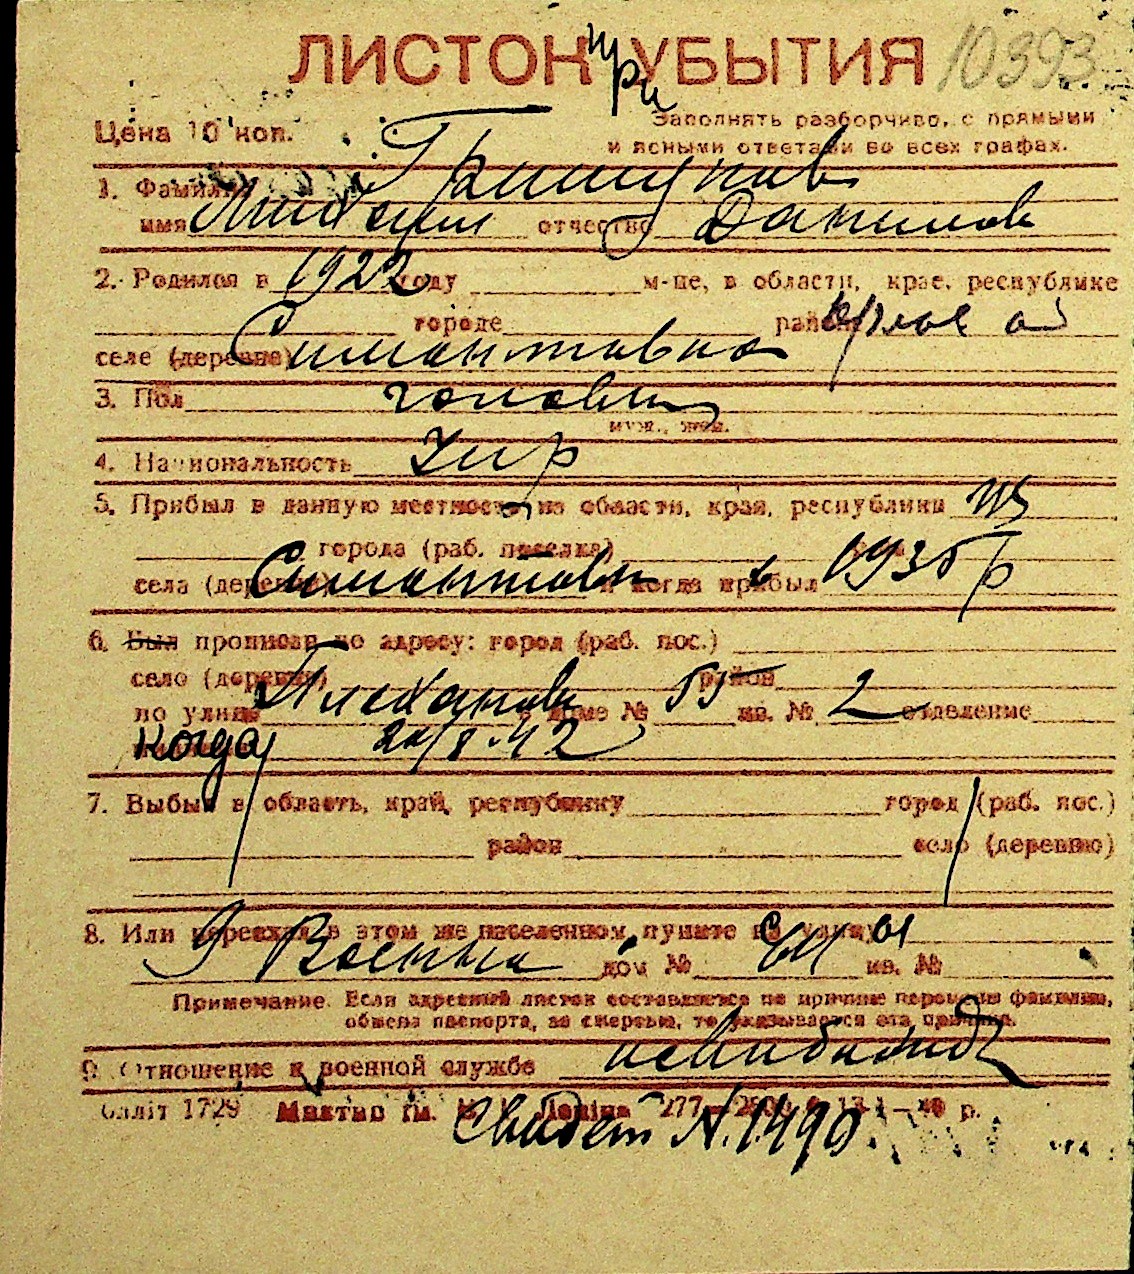 ЛИСТОК при УБЫТИЯ 10393
Цена 10 коп. Заполнять разборчиво, с прямыми
и ясными ответами во всех графах.
1. Фамилия Гришунов
имя отчество Данилов
2. Родился в 1922 году м-це, в области, крае, республике
городе район
селе (деревне) Симонтовка
3. Пол чоловіч
муж., жен.
4. Национальность Укр
5. Прибыл в данную местность из области, края, республики из
города (раб. поселка)
села (деревни) Симонтовки и когда прибыл в 1935 р
6. Был прописан по адресу: город (раб. пос.)
село (деревня) район
по улице Плеханова в доме № 55 кв. № 2 отделение
Когда 24/8.42
7. Выбыл в область, край, республику город (раб. пос.)
район село (деревню)
8. Или переехал в этом же населенном пункте на улицу
дом № кв. №
Примечание. Если адресный листок составляется по причине перемены фамилии,
обмена паспорта, за смертью, то указывается эта причина.
9. Отношение к военной службе
Обліт 1729 277—2800 13.I—40 р.
Свидет N. 1490.